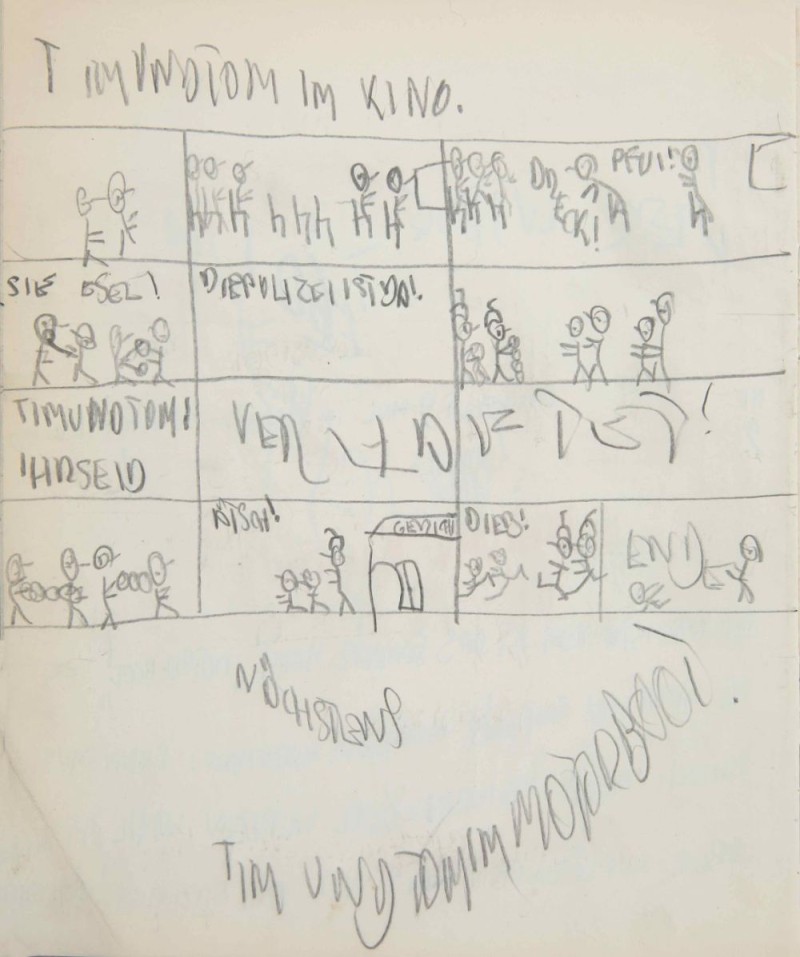 TIM UND TOM IM KINO.
DR
ECK!
PFUI!
SIE ESEL!
DIEPOLIZEIISTDA!
TIMUNDTOM!
IHRSEID
VER
DIEB!
END
NÖCHSTENS
TIM UND TOM IM MOTORBOOT.